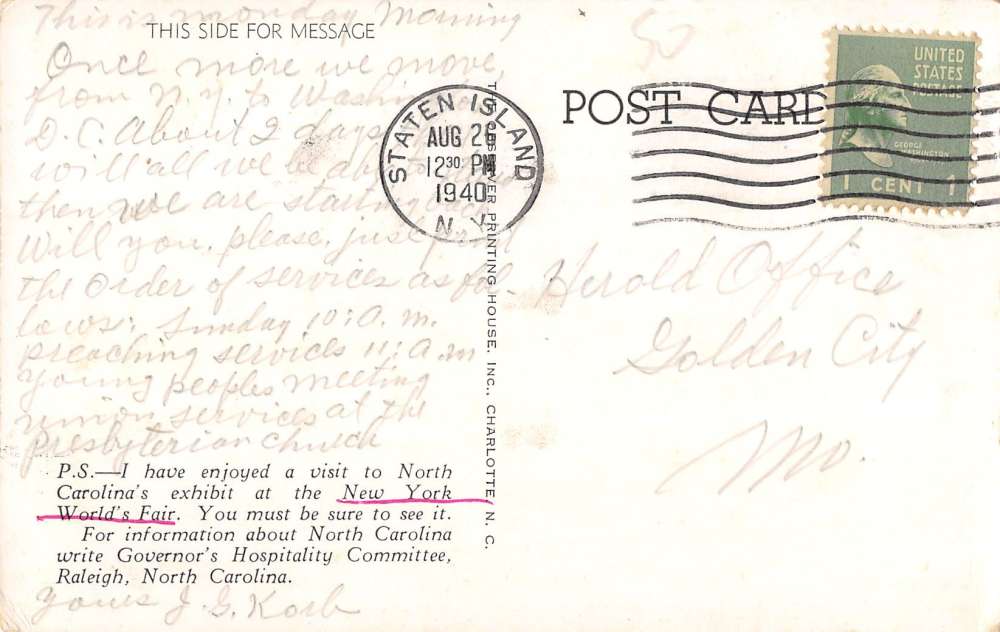 This is monday Morning
THIS SIDE FOR MESSAGE
Once more we move,
from N.Y. to Washin
D.C. About 2 days
will all we'll
then we are starting
Will you, please, just
the Order of services as fol-
lows: Sunday 10: a.m.
preaching services 11: a.m
young peoples meeting
union services at the
Presbyterian church
P.S.—I have enjoyed a visit to North
Carolina's exhibit at the New York
World's Fair. You must be sure to see it.
For information about North Carolina
write Governor's Hospitality Committee,
Raleigh, North Carolina.
Yours J. G. Korb
PRINTING HOUSE, INC., CHARLOTTE, N. C.
STATEN ISLAND
AUG 26
12 30 PM
1940
N.Y.
POST CARD
UNITED
STATES
POSTAGE
GEORGE
WASHINGTON
1 CENT 1
Herald Office
Golden City
Mo.